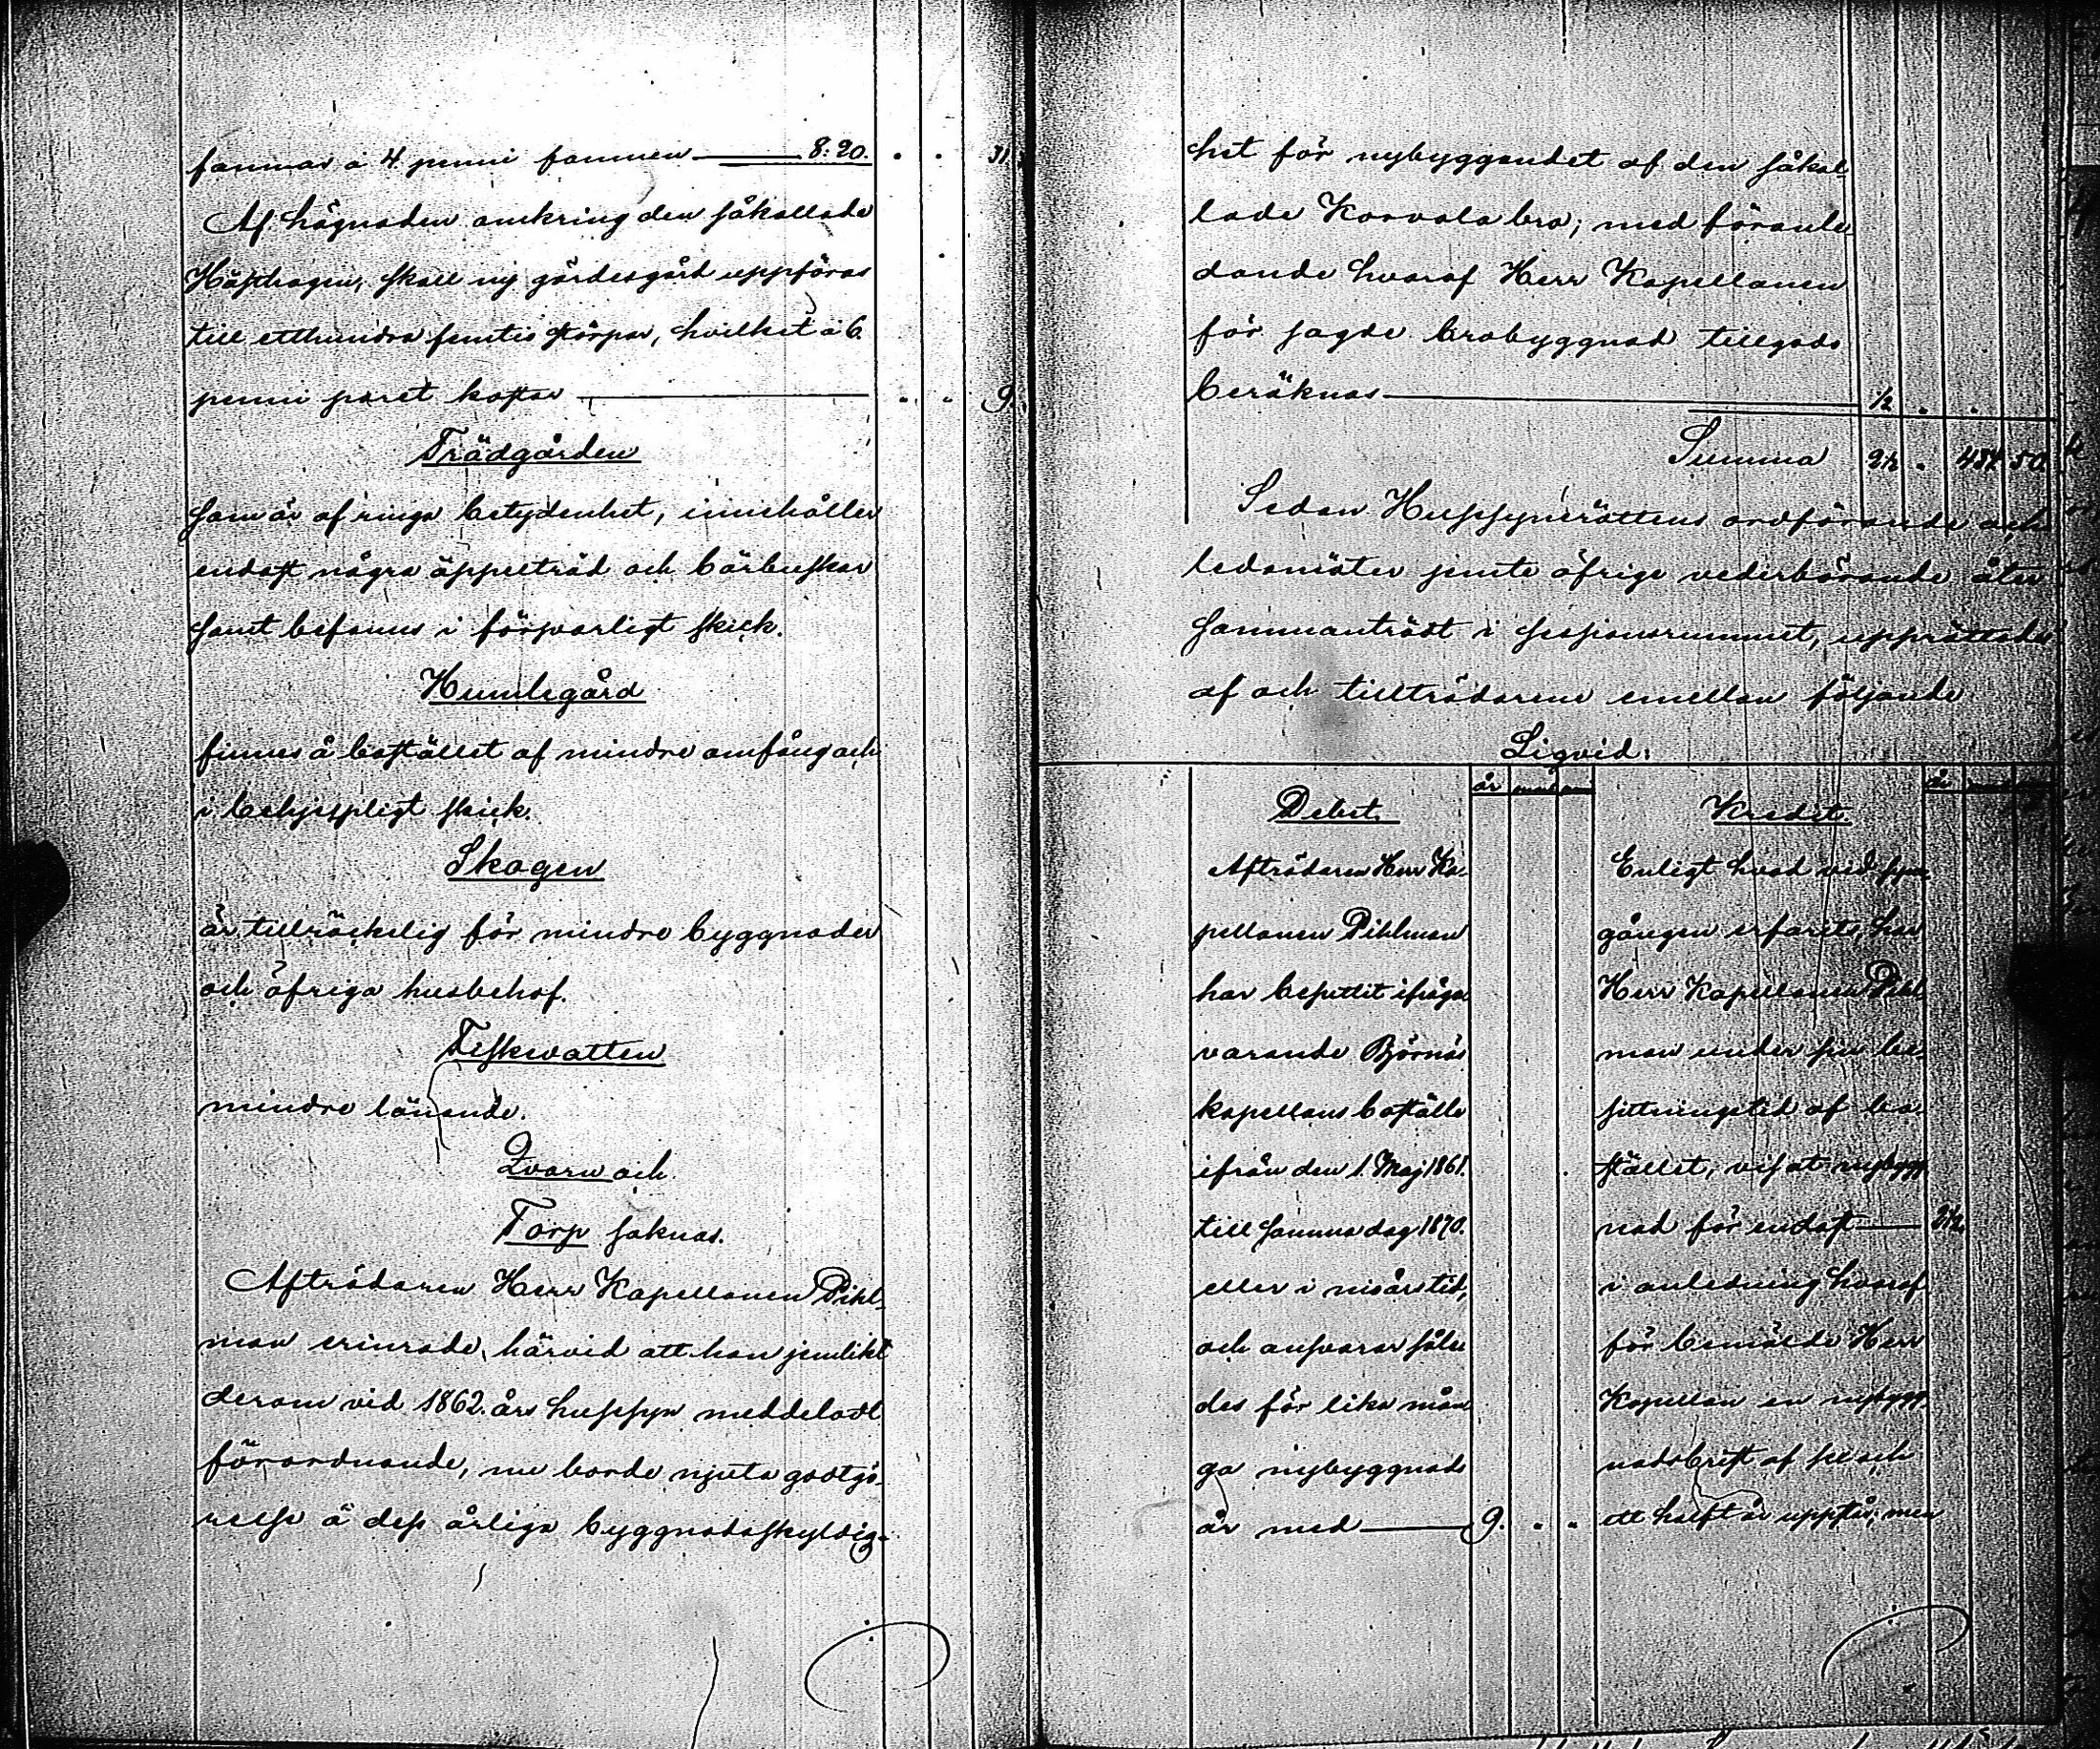 famnar à 4. penni famnen — 8: 20. . . 31.
Af hägnaden omkring den såkallade
Hästhagen, skall ny gärdesgård uppföras
till etthundra femtio störpar, hvilket à 6.
penni paret kostar — . . 9.
Trädgården
som är af ringa betydenhet, innehåller
endast några äppelträd och bärbuskar
samt befanns i försvarligt skick.
Humlegård
finnes å bostället af mindre omfång och
i behjelpligt skick.
Skogen
är tillräckelig för mindre byggnader
och öfriga husbehof.
Fiskevatten
mindre lönande.
Qvarn och
Torp saknas.
Afträdaren Herr Kapellanen Pihl-
man erinrade, härvid att han jemlikt
derom vid 1862. års husesyn meddeladt
förordnande, nu borde njuta godtgö-
relse å dess årliga byggnadsskyldig-
het för nybyggandet af den såkal-
lade Korvala bro; med föranle-
dande hvaraf Herr Kapellanen
för sagde brobyggnad tillgodo
beräknas — 1/2 . .
Summa 2 1/2 . 50.
Sedan Husesynerättens ordförande och
ledamöter jemte öfrige vederbörande åter
sammanträdt i sessionsrummet, upprättades
af och tillträdarene emellan följande
Liqvid:
Debet.
år
Afträdaren Herr Ka-
pellanen Pihlman
har besuttit ifråga-
varande Björnäs
kapellans boställe
ifrån den 1. Maj 1861.
till samma dag 1870.
eller i nio års tid,
och ansvarar såle-
des för lika mån-
ga nybyggnads
år med — 9. . .
Kredit.
år
Enligt hvad vid syne-
gången erfarits, har
Herr Kapellanen Pihl-
man under sin be-
sittningstid af bo-
stället, visat nybygg-
nad för endast — 2 1/2
i anledning hvaraf
för bemälde Herr
Kapellan en nybygg-
nadsbrist af sex och
ett halft år uppstår; men